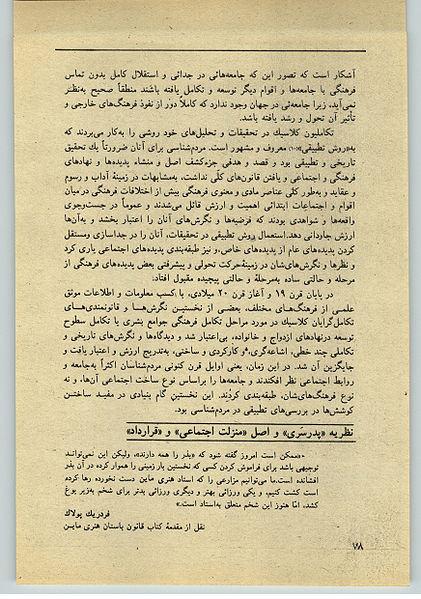 آشکار است که تصور این که جامعه‌هائی در جدائی و استقلال کامل بدون تماس
فرهنگی با جامعه‌ها و اقوام دیگر توسعه و تکامل یافته باشند منطقاً صحیح به‌نظر
نمی‌آید، زیرا جامعه‌ئی در جهان وجود ندارد که کاملاً دور از نفوذ فرهنگ‌های خارجی و
تأثیر آن تحول و رشد یافته باشد.
تکاملیون کلاسیک در تحقیقات و تحلیل‌های خود روشی را به‌کار می‌بردند که
به«روش تطبیقی» معروف و مشهور است. مردم‌شناسی برای آنان ضرورتاً یک تحقیق
تاریخی و تطبیقی بود و قصد و هدفی جزکشف اصل و منشاء پدیده‌ها و نهادهای
فرهنگی و اجتماعی و یافتن قانون‌های کلی نداشت، به‌مشابهات در زمینهٔ آداب و رسوم
و عقاید و به‌طور کلی عناصر مادی و معنوی فرهنگی بیش از اختلافات فرهنگی درمیان
اقوام و اجتماعات ابتدائی اهمیت و ارزش قائل می‌شدند و عموماً در جست‌وجوی
واقعه‌ها و شواهدی بودند که فرضیه‌ها و نگرش‌های آنان را اعتبار بخشد و به‌آن‌ها
ارزش جاودانی دهد. استعمال روش تطبیقی در تحقیقات، آنان را در جداسازی ومستقل
کردن پدیده‌های عام از پدیده‌های خاص، و نیز طبقه‌بندی پدیده‌های اجتماعی یاری کرد
و نظرها و نگرش‌های‌شان در زمینهٔ حرکت تحولی و پیشرفتی بعض پدیده‌های فرهنگی از
مرحله و حالتی ساده به‌مرحله و حالتی پیچیده مقبول افتاد.
در پایان قرن ۱۹ و آغاز قرن ۲۰ میلادی، با کسب معلومات و اطلاعات موثق
علمی از فرهنگ‌های مختلف، بعضی از نخستین نگرش‌ها و قانونمندی‌های
تکامل‌گرایان کلاسیک در مورد مراحل تکامل فرهنگی جوامع بشری یا تکامل سطوح
توسعه درنهادهای ازدواج و خانواده، بی‌اعتبار شد و دیدگاه‌ها و نگرش‌های تاریخی و
تکاملی چند خطی، اشاعه‌گری، و کارکردی و ساختی، به‌تدریج ارزش و اعتبار یافت و
جایگزین آن شد. در این زمان، یعنی اوایل قرن کنونی مردم‌شناسان اکثراً به‌جامعه و
روابط اجتماعی نظر افکندند و جامعه‌ها را براساس نوع ساخت اجتماعی آن‌ها، و نه
نوع فرهنگ‌های‌شان، طبقه‌بندی کردند. این نخستین گام بنیادی در مفید ساختن
کوشش‌ها در بررسی‌های تطبیقی در مردم‌شناسی بود.
نظریه «پدرسَری» و اصل «منزلت اجتماعی» و «قرارداد»
«ممکن است امروز گفته شود که «پدر را همه دارند»، ولیکن این نمی‌تواند
توجیهی باشد برای فراموش کردن کسی که نخستین بار زمینی را هموار کرده در آن بذر
افشانده است. ما می‌توانیم مزارعی را که استاد هنری ماین دست نخورده رها کرده
است کشت کنیم، و یکی ورزائی بهتر و دیگری ورزائی بدتر برای شخم به‌زیر یوغ
کشد، امّا هنوز این شخم متعلق به‌استاد است.»
فردریک پولاک
نقل از مقدمهٔ کتاب قانون باستان هنری ماین
۷۸